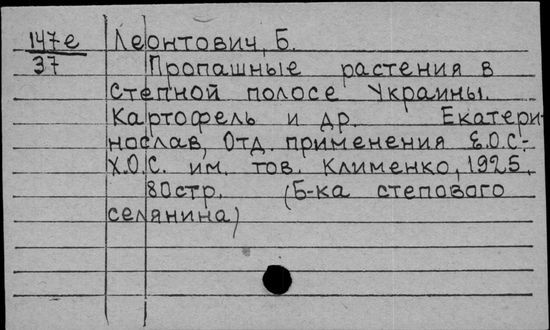 147е Леонтович, Б.
37 Пропашные растения в
степной полосе Украины.
Картофель и др. Екатери-
нослав, Отд. применения Е.О.С.-
Х.О.С. им. тов. Клименко, 1925.
80стр. (Б-ка степового
селянина)